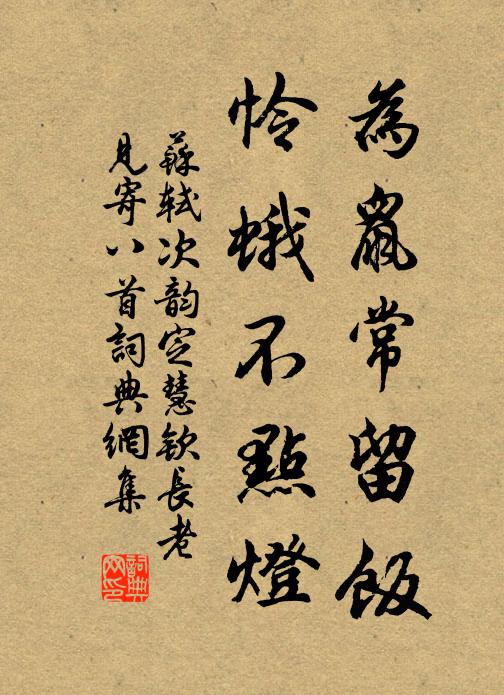 為鼠常留飯
憐蛾不點燈
蘇軾次韵定慧欽長老
見寄八首詞典網集
詞典
网印